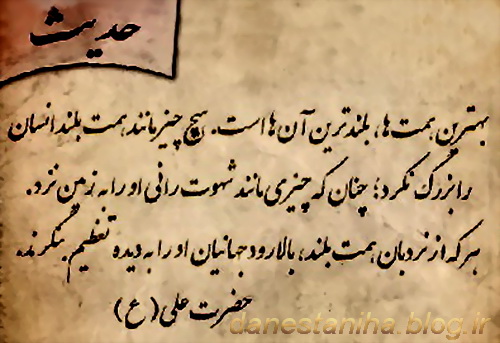 حدیث
بهترین همت ها، بلندترین آن ها است. هیچ چیز مانند همت بلند انسان
را بزرگ نکرد؛ چنان که چیزی مانند شهوت رانی او را به زمین نزد.
هر که از نردبان همت بلند، بالا رود جهانیان او را به دیده تعظیم بنگرند.
حضرت علی (ع)
danestaniha.blog.ir